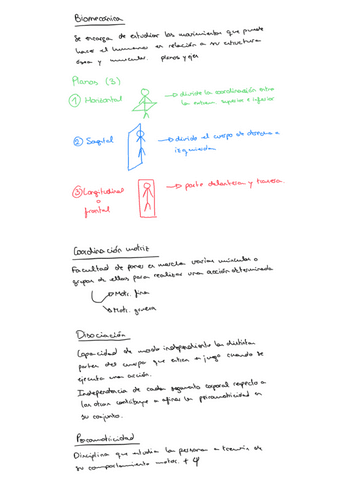 Biomecánica
Se encarga de estudiar los movimientos que puede
hacer el humano en relación a su estructura
ósea y muscular. planos y ejes
Planos (3)
① Horizontal → divide la coordinación entre
la extrem. superior e inferior
② Sagital → divide el cuerpo de derecha a
izquierda
③ Longitudinal → parte delantera y trasera.
o
frontal
Coordinación motriz
Facultad de poner en marcha varios músculos o
grupos de ellos para realizar una acción determinada
→ Mot. fina
→ Mot. gruesa
Disociación
Capacidad de modo independiente las distintas
partes del cuerpo que entran + juego cuando se
ejecuta una acción.
Independencia de cada segmento corporal respecto a
los otros contribuye a afinar la psicomotricidad en
su conjunto.
Psicomotricidad
Disciplina que estudia las personas a través de
su comportamiento motor. + φ